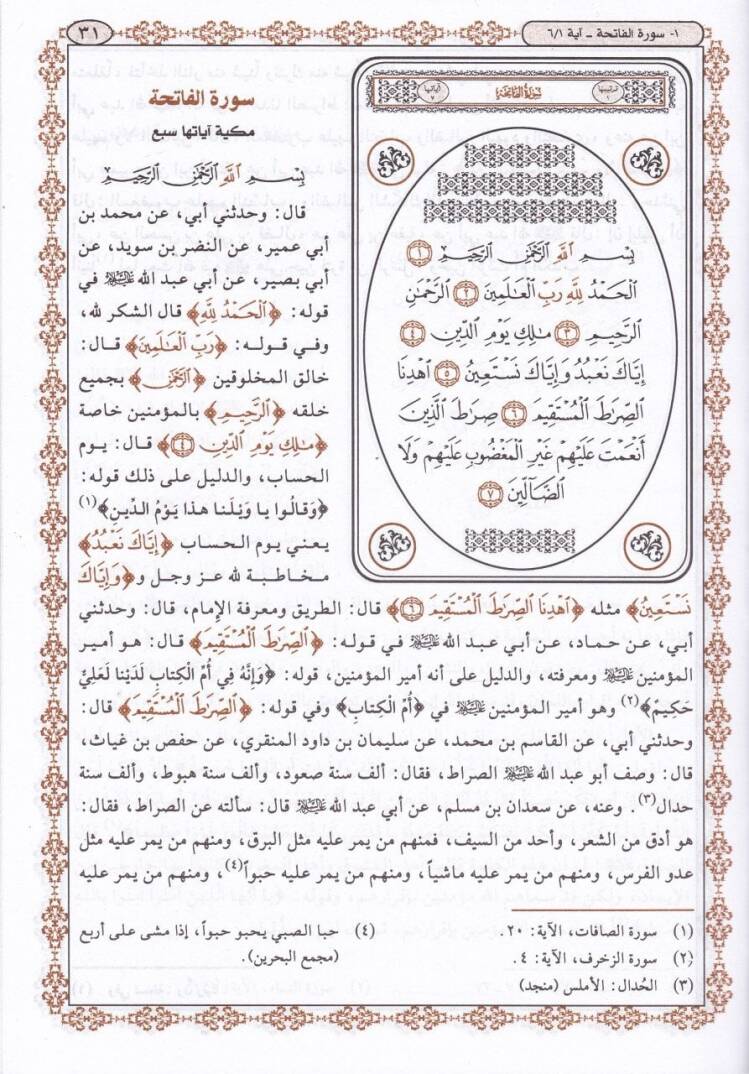 ١- سورة الفاتحة ـ آية ٦/١
٣١
سُورَةُ الفَاتِحَةِ
بِسْمِ اللَّهِ الرَّحْمَٰنِ الرَّحِيمِ ١
الْحَمْدُ لِلَّهِ رَبِّ الْعَالَمِينَ ٢ الرَّحْمَٰنِ
الرَّحِيمِ ٣ مَالِكِ يَوْمِ الدِّينِ ٤
إِيَّاكَ نَعْبُدُ وَإِيَّاكَ نَسْتَعِينُ ٥ اهْدِنَا
الصِّرَاطَ الْمُسْتَقِيمَ ٦ صِرَاطَ الَّذِينَ
أَنْعَمْتَ عَلَيْهِمْ غَيْرِ الْمَغْضُوبِ عَلَيْهِمْ وَلَا
الضَّالِّينَ ٧
سورة الفاتحة
مكية آياتها سبع
بِسْمِ اللَّهِ الرَّحْمَٰنِ الرَّحِيمِ
قال: وحدثني أبي، عن محمد بن
أبي عمير، عن النضر بن سويد، عن
أبي بصير، عن أبي عبد الله عليه السلام في
قوله: ﴿الْحَمْدُ لِلَّهِ﴾ قال الشكر لله،
وفي قوله: ﴿رَبِّ الْعَالَمِينَ﴾ قال:
خالق المخلوقين ﴿الرَّحْمَٰنِ﴾ بجميع
خلقه ﴿الرَّحِيمِ﴾ بالمؤمنين خاصة
﴿مَالِكِ يَوْمِ الدِّينِ ٤﴾ قال: يوم
الحساب، والدليل على ذلك قوله:
﴿وَقَالُوا يا وَيْلَنا هذا يَوْمُ الدِّينِ﴾(١)
يعني يوم الحساب ﴿إِيَّاكَ نَعْبُدُ﴾
مخاطبة لله عز وجل و﴿وَإِيَّاكَ
نَسْتَعِينُ﴾ مثله ﴿اهْدِنَا الصِّرَاطَ الْمُسْتَقِيمَ ٦﴾ قال: الطريق ومعرفة الإمام، قال: وحدثني
أبي، عن حماد، عن أبي عبد الله عليه السلام في قوله: ﴿الصِّرَاطَ الْمُسْتَقِيمَ﴾ قال: هو أمير
المؤمنين عليه السلام ومعرفته، والدليل على أنه أمير المؤمنين، قوله: ﴿وَإِنَّهُ فِي أُمِّ الْكِتابِ لَدَيْنا لَعَلِيٌّ
حَكِيم﴾(٢) وهو أمير المؤمنين عليه السلام في ﴿أُمِّ الْكِتابِ﴾ وفي قوله: ﴿الصِّرَاطَ الْمُسْتَقِيمَ﴾ قال:
وحدثني أبي، عن القاسم بن محمد، عن سليمان بن داود المنقري، عن حفص بن غياث،
قال: وصف أبو عبد الله عليه السلام الصراط، فقال: ألف سنة صعود، وألف سنة هبوط، وألف سنة
حدال(٣). وعنه، عن سعدان بن مسلم، عن أبي عبد الله عليه السلام قال: سألته عن الصراط، فقال:
هو أدق من الشعر، وأحد من السيف، فمنهم من يمر عليه مثل البرق، ومنهم من يمر عليه مثل
عدو الفرس، ومنهم من يمر عليه ماشياً، ومنهم من يمر عليه حبواً(٤)، ومنهم من يمر عليه
(١) سورة الصافات، الآية: ٢٠.
(٢) سورة الزخرف، الآية: ٤.
(٣) الحُدال: الأملس (منجد)
(٤) حبا الصبي يحبو حبواً، إذا مشى على أربع
(مجمع البحرين).